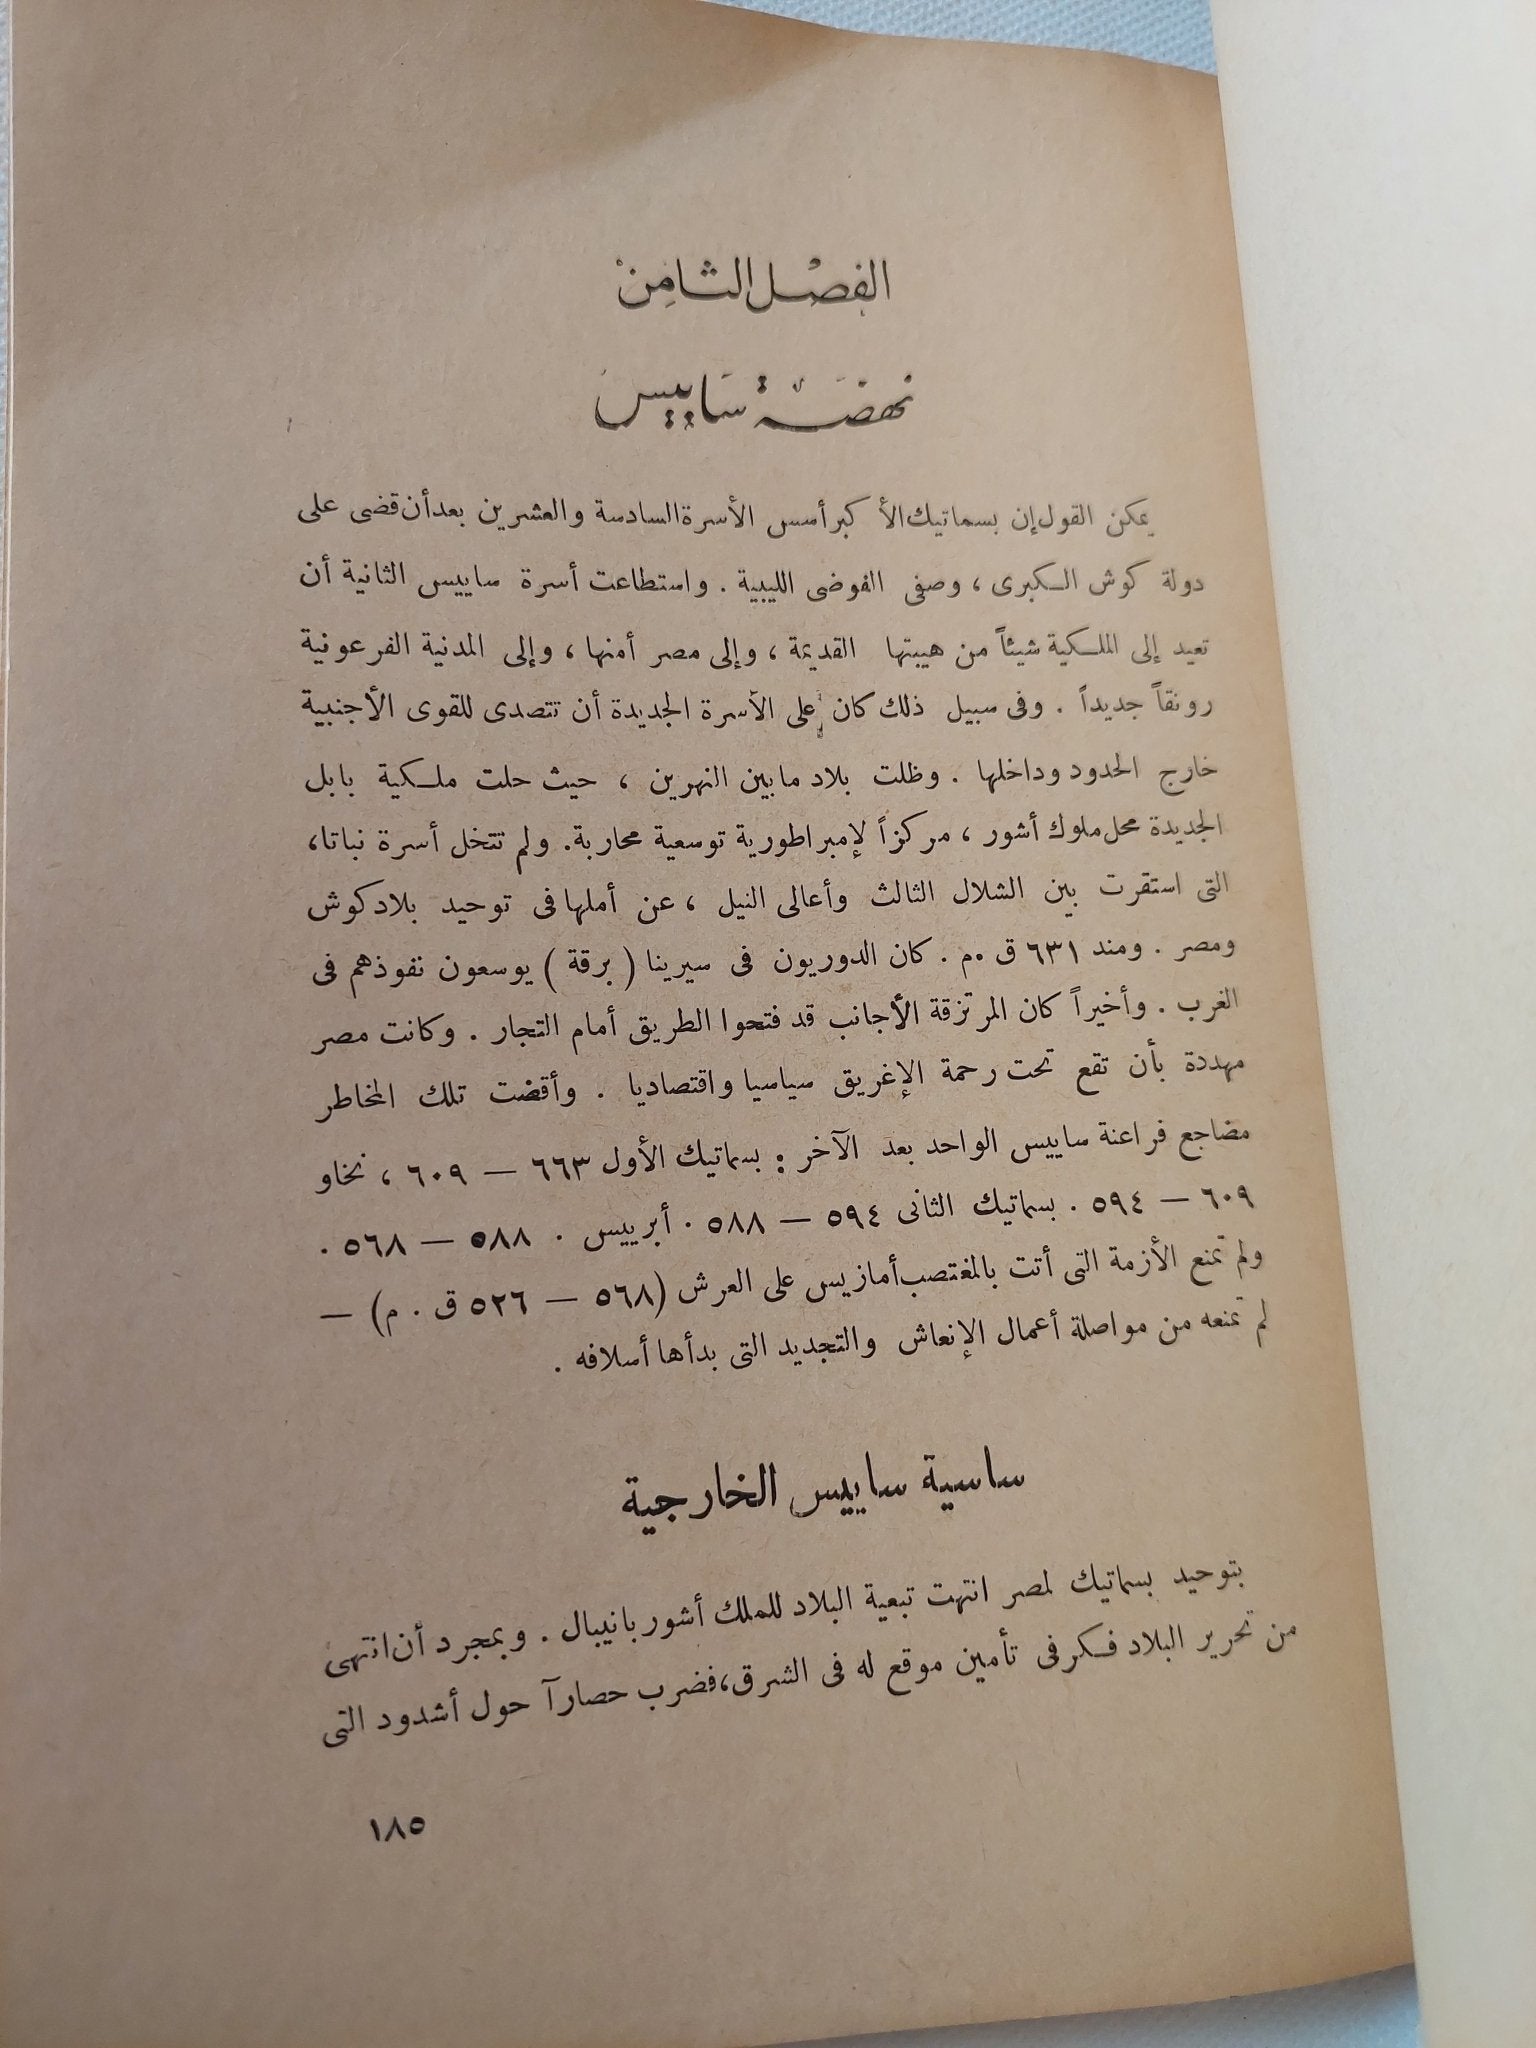 الفصل الثامن
نهضة ساييس
يمكن القول إن بسماتيك الأكبر أسس الأسرة السادسة والعشرين بعد أن قضى على
دولة كوش الكبرى ، وصفى الفوضى الليبية . واستطاعت أسرة ساييس الثانية أن
تعيد إلى الملكية شيئاً من هيبتها القديمة ، وإلى مصر أمنها ، وإلى المدنية الفرعونية
رونقاً جديداً . وفى سبيل ذلك كان على الأسرة الجديدة أن تتصدى للقوى الأجنبية
خارج الحدود وداخلها . وظلت بلاد ما بين النهرين ، حيث حلت ملكية بابل
الجديدة محل ملوك أشور ، مركزاً لإمبراطورية توسعية محاربة. ولم تتخل أسرة نباتا،
التى استقرت بين الشلال الثالث وأعالى النيل ، عن أملها فى توحيد بلاد كوش
ومصر . ومند ٦٣١ ق .م . كان الدوريون فى سيرينا ( برقة ) يوسعون نفوذهم فى
الغرب . وأخيراً كان المرتزقة الأجانب قد فتحوا الطريق أمام التجار . وكانت مصر
مهددة بأن تقع تحت رحمة الإغريق سياسيا واقتصاديا . وأقضت تلك المخاطر
مضاجع فراعنة ساييس الواحد بعد الآخر : بسماتيك الأول ٦٦٣ – ٦٠٩ ، نخاو
٦٠٩ – ٥٩٤ . بسماتيك الثانى ٥٩٤ – ٥٨٨ . أبرييس . ٥٨٨ – ٥٦٨ .
ولم تمنع الأزمة التى أتت بالمغتصب أمازيس على العرش (٥٦٨ – ٥٢٦ ق . م) –
لم تمنعه من مواصلة أعمال الإنعاش والتجديد التى بدأها أسلافه .
ساسية ساييس الخارجية
بتوحيد بسماتيك لمصر انتهت تبعية البلاد للملك أشور بانيبال . وبمجرد أن انتهى
من تحرير البلاد فكر فى تأمين موقع له فى الشرق، فضرب حصارآ حول أشدود التى
١٨٥